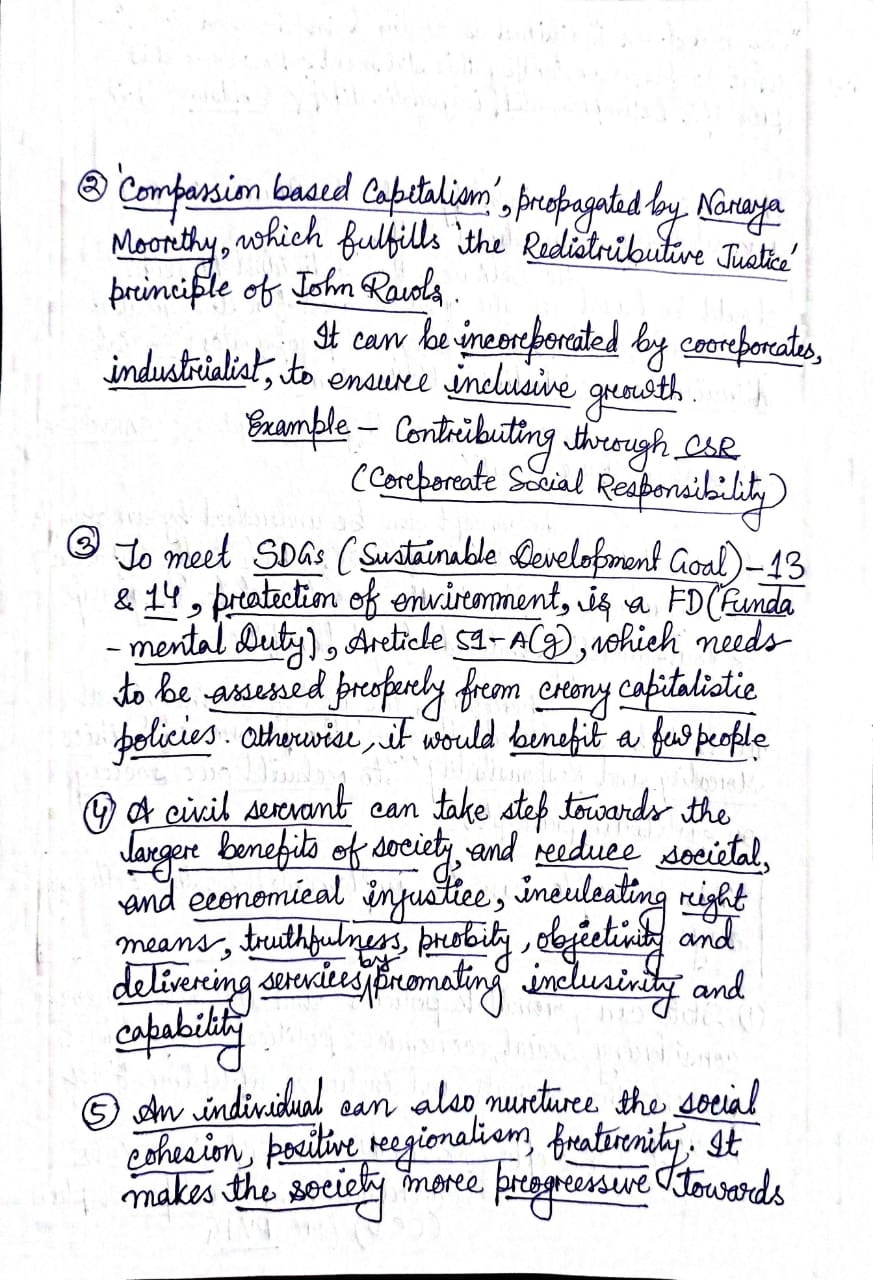 ② 'Compassion based Capitalism', propagated by Naraya
Moorthy, which fulfills 'the Redistributive Justice'
principle of John Rawls.
It can be incorporated by coorporates,
industrialist, to ensure inclusive growth.
Example – Contributing through CSR
(Corporate Social Responsibility)
③ To meet SDGs (Sustainable Development Goal) – 13
& 14, protection of environment, is a FD (Funda
- mental Duty), Article 51-A(g), which needs
to be assessed properly from crony capitalistic
policies. Otherwise, it would benefit a few people
④ A civil servant can take step towards the
larger benefits of society, and reduce societal,
and economical injustice, inculcating right
means, truthfulness, probity, objectivity and
delivering services, by promoting inclusivity and
capability.
⑤ An individual can also nurture the social
cohesion, positive regionalism, fraternity. It
makes the society more progressive towards